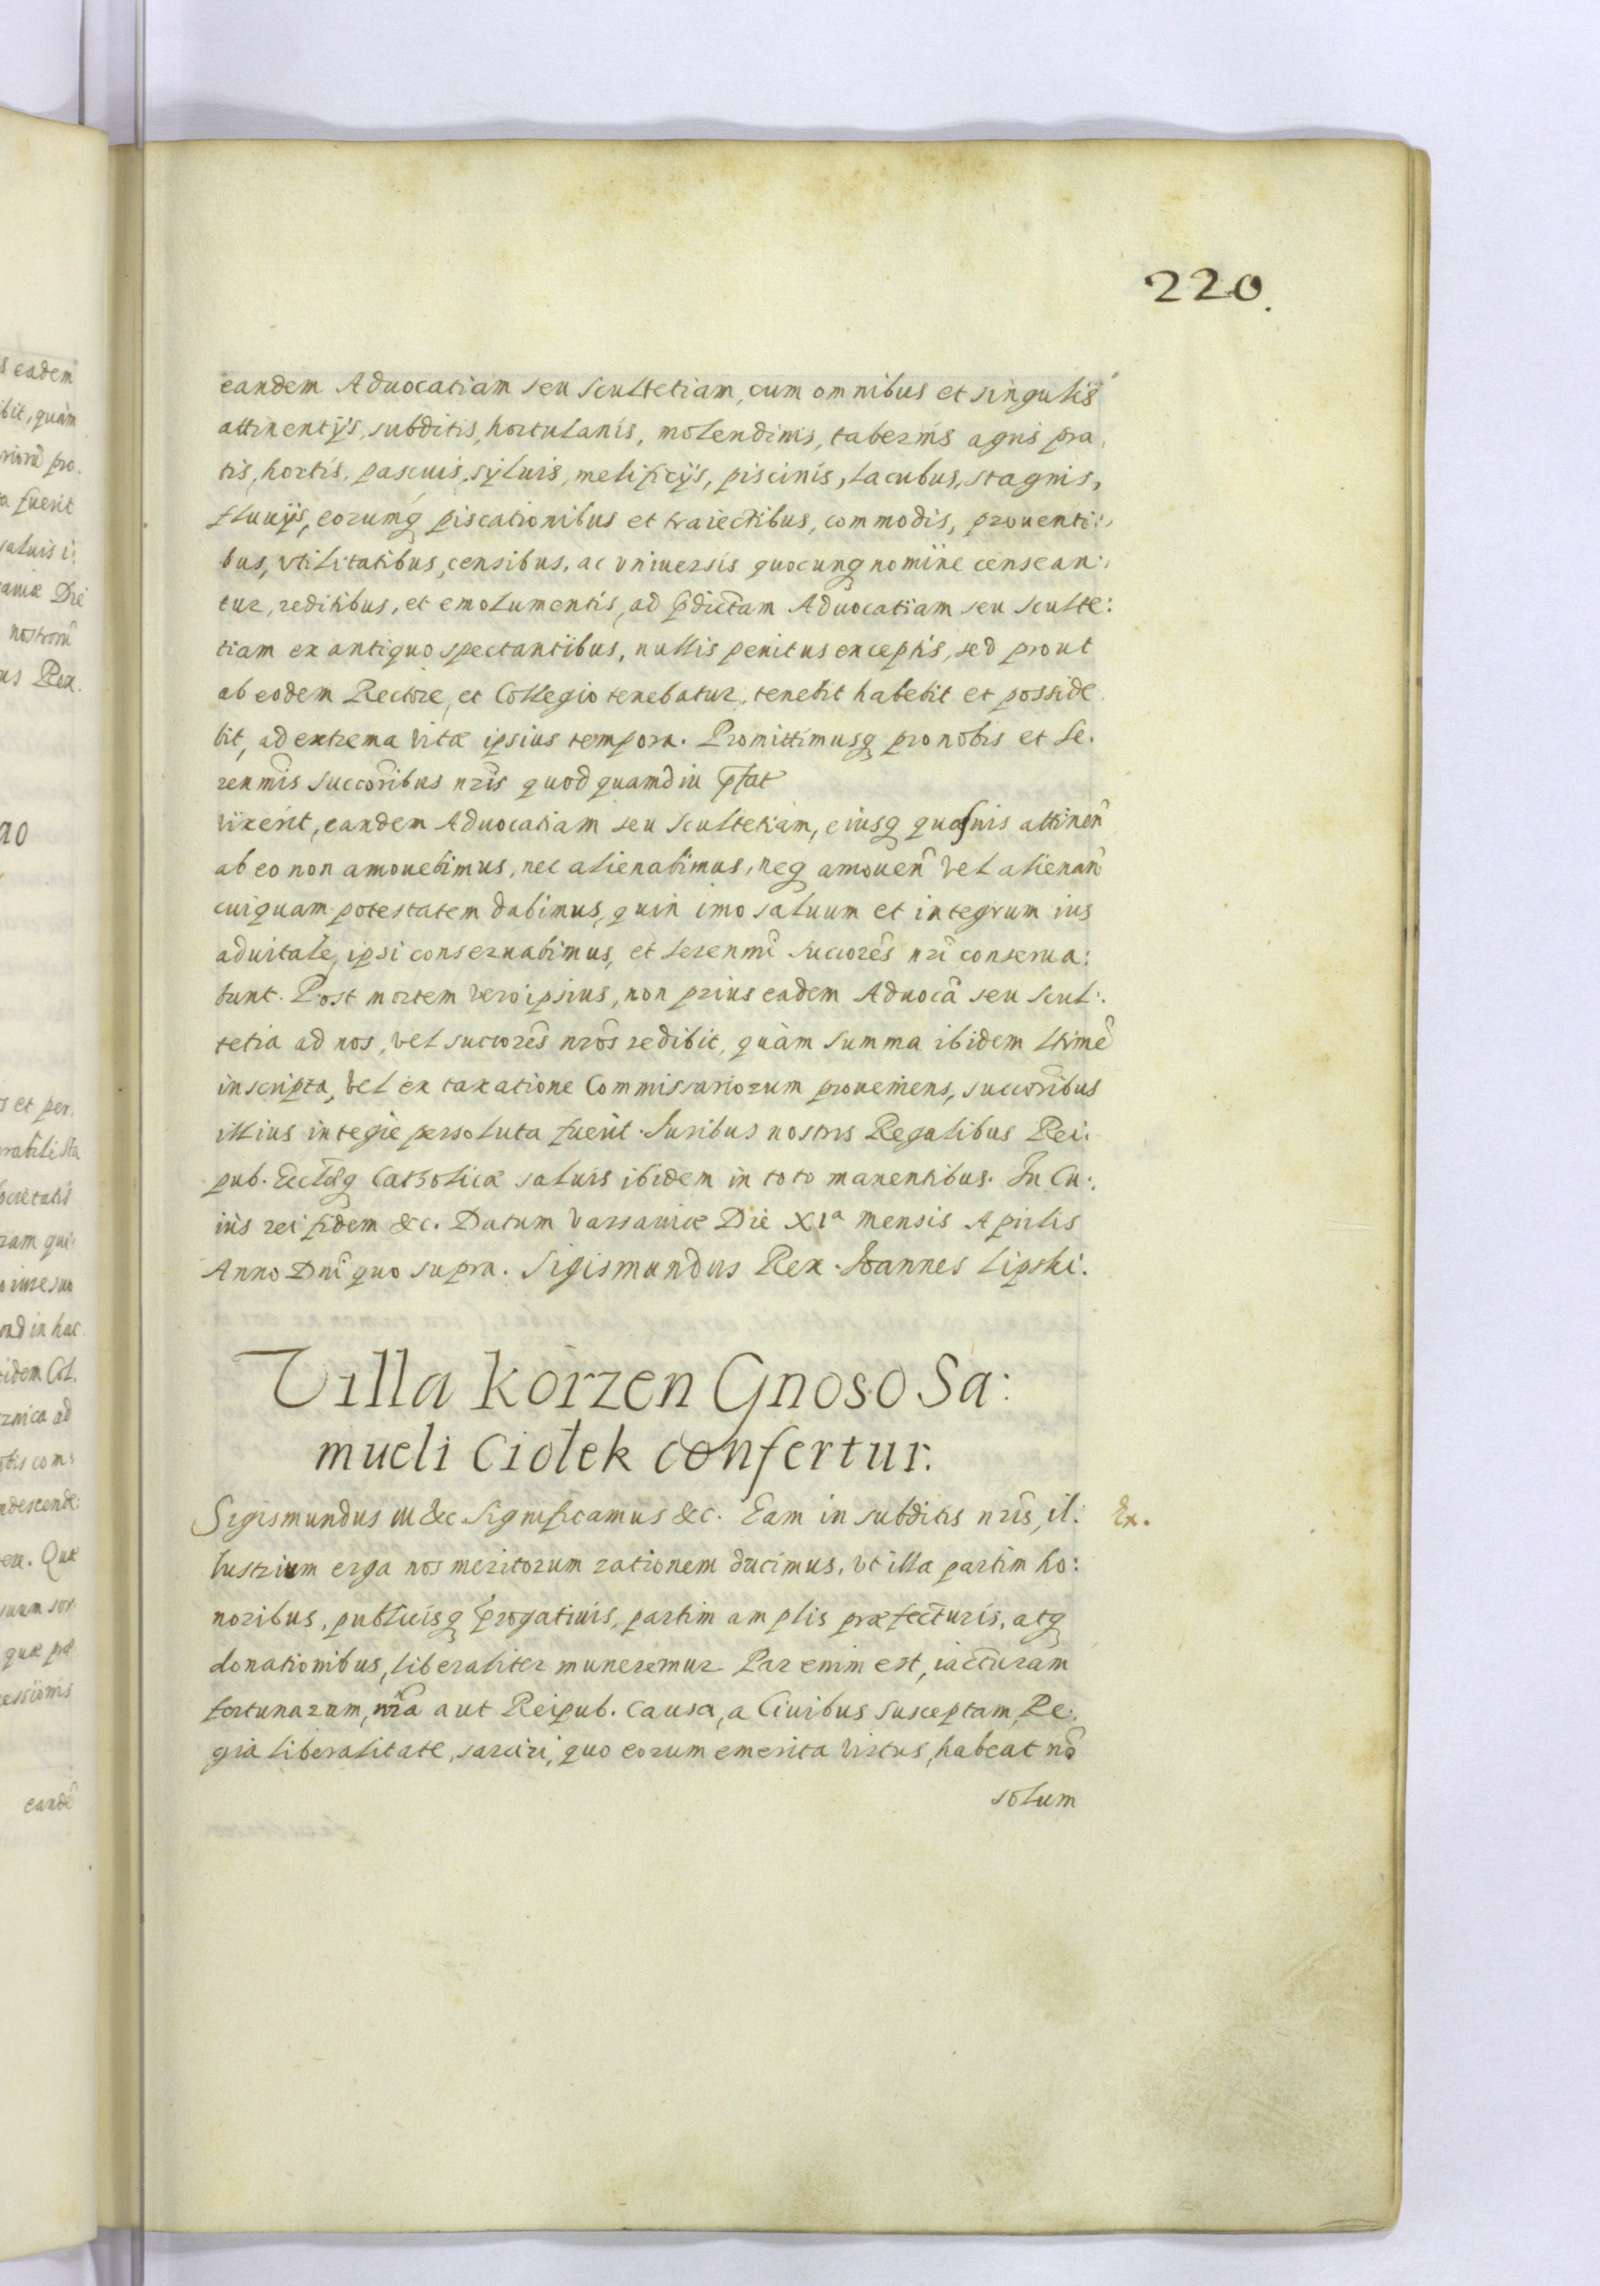 220.
eandem Aduocatiam seu Scultetiam, cum omnibus et singulis
attinentijs, subditis, hortulanis, molendinis, tabernis agris pra,
tis, hortis, pascuis, syluis, melificijs, piscinis, lacubus, stagnis,
fluuijs, eorumq piscationibus et traiectibus, commodis, prouenti:,
bus, vtilitatibus, censibus, ac vniuersis quocunq nomine censean:,
tur, reditibus, et emolumentis, ad p̄dictam Aduocatiam seu Sculte:
tiam ex antiquo spectantibus, nullis penitus exceptis, sed prout
ab eodem Rectore, et Collegio tenebatur, tenebit habebit et posside
bit, ad extrema vitæ ipsius tempora. Promittimusq pro nobis et Se.
renmis Succoribus nris quod quamdiu p̄fat
vixerit, eandem Aduocatiam seu Scultetiam, eiusq quasuis attinen
ab eo non amouebimus, nec alienabimus, neq amouen vel alienan
cuiquam potestatem dabimus, quin imo saluum et integrum ius
aduitale, ipsi conseruabimus, et Serenmi Succores nri conserua:
bunt. Post mortem vero ipsius, non prius eadem Aduoca seu Scul:.
tetia ad nos, vel succores nros redibit, quàm summa ibidem
inscripta, vel ex taxatione Commissariorum proueniens, succoribus
illius integre persoluta fuerit. Iuribus nostris Regalibus Rei.
pub. Ecclæq Catholicæ saluis ibidem in toto manentibus. In Cu:.
ius rei fidem &c. Datum Varsauiæ Die XIa Mensis Aprilis
Anno Dni quo supra. Sigismundus Rex. Ioannes Lipski.
Villa Korzen Gnoso Sa:
mueli Ciołek confertur.
Sigismundus III &c. Significamus &c. Eam in subditis nris, il:
Ex.
lustrium erga nos meritorum rationem ducimus, vt illa partim ho:
noribus, publicisq p̄rogatiuis, partim amplis præfecturis, atq
donationibus, liberaliter muneremur. Par enim est, iacturam
fortunarum, nra aut Reipub. causa, a Ciuibus susceptam, Re:.
gia liberalitate, sarciri, quo eorum emerita virtus, habeat nō
solum